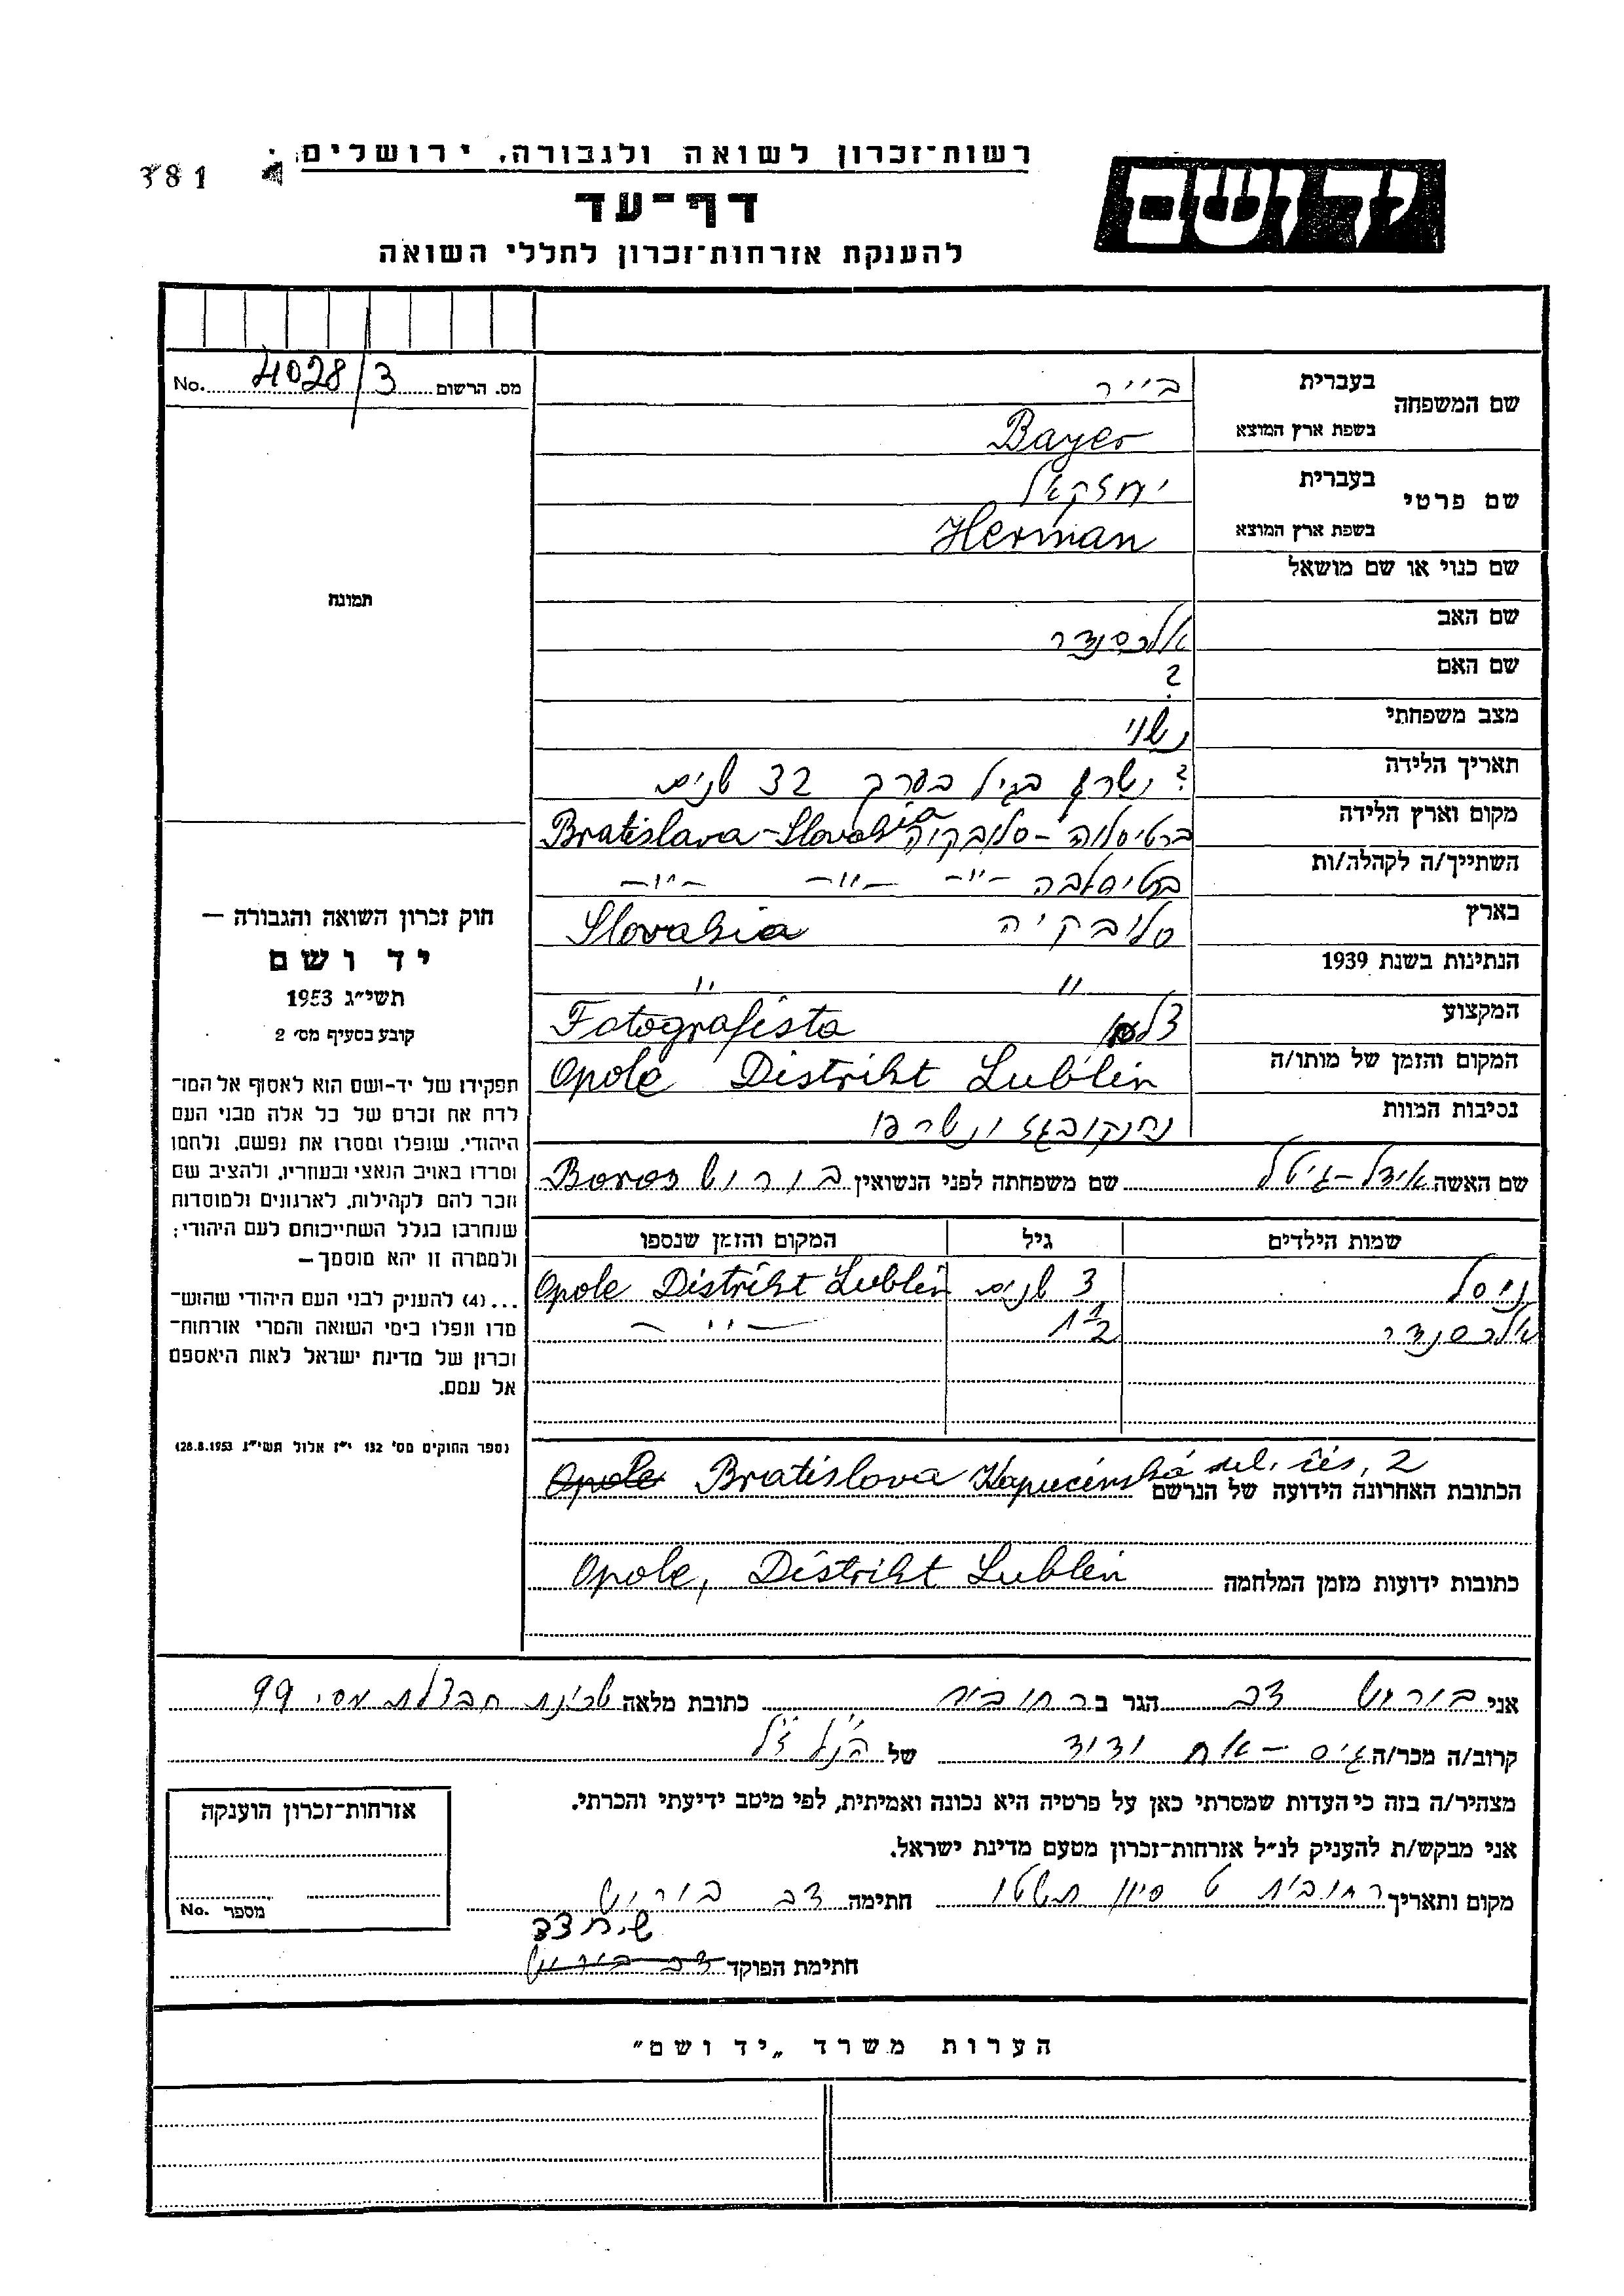 רשות-זכרון לשואה ולגבורה, ירושלים
381
דף-עד
להענקת אזרחות-זכרון לחללי השואה
יד ושם
No. 4028/3 מס. הרשום
שם המשפחה
בעברית
בייר
בשפת ארץ המוצא
Bayer
שם פרטי
בעברית
יחזקאל
בשפת ארץ המוצא
Herman
שם כנוי או שם מושאל
שם האב
אלכסנדר
שם האם
?
מצב משפחתי
נשוי
תאריך הלידה
? נשרף בגיל בערך 32 שנים
מקום וארץ הלידה
ברטיסלוה - סלובקיה Bratislava - Slovakia
השתייך/ה לקהלה/ות
ברטיסלבה -"- -"- -"-
בארץ
סלובקיה Slovakia
הנתינות בשנת 1939
" "
המקצוע
צלם Fotografista
המקום והזמן של מותו/ה
Opole Distrikt Lublin
נסיבות המוות
ונשרפו
שם האשה אידל-גיטל שם משפחתה לפני הנשואין בורוש Boros
שמות הילדים גיל המקום והזמן שנספו
3 שנים Opole Distrikt Lublin
אלכסנדר 1½ -"-
הכתובת האחרונה הידועה של הנרשם Opole Bratislava Kapucínská ul. čís, 2
כתובות ידועות מזמן המלחמה Opole, Distrikt Lublin
תמונה
חוק זכרון השואה והגבורה —
יד ושם
תשי"ג 1953
קובע בסעיף מס' 2
תפקידו של יד-ושם הוא לאסוף אל המו-
לדת את זכרם של כל אלה מבני העם
היהודי, שנפלו ומסרו את נפשם, נלחמו
ומרדו באויב הנאצי ובעוזריו, ולהציב שם
וזכר להם לקהילות, לארגונים ולמוסדות
שנחרבו בגלל השתייכותם לעם היהודי;
ולמטרה זו יהא מוסמך—
...(4) להעניק לבני העם היהודי שהוש-
מדו ונפלו בימי השואה והמרי אזרחות-
זכרון של מדינת ישראל לאות היאספם
אל עמם.
(ספר החוקים מס' 132 י"ז אלול תשי"ג 28.8.1953)
אני בורוש צבי הגר ב רחובות כתובת מלאה שכונת חבצלת מס' 99
קרוב/ה מכר/ה גיס - אח ודוד של הנ"ל ז"ל
מצהיר/ה בזה כי העדות שמסרתי כאן על פרטיה היא נכונה ואמיתית, לפי מיטב ידיעתי והכרתי.
אני מבקש/ת להעניק לנ"ל אזרחות-זכרון מטעם מדינת ישראל.
מקום ותאריך רחובות ט סיון תשטו חתימה צבי בורוש
חתימת הפוקד
אזרחות-זכרון הוענקה
No. מספר
הערות משרד „יד ושם"